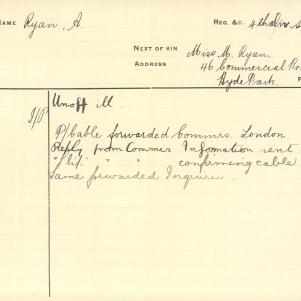 NAME Ryan, A. REG. &C. 4th Div. S
NEXT OF KIN Miss. M. Ryan.
ADDRESS 46 Commercial Ro
Hyde Park.
Unoff ill
P/Cable forwarded Commrs. London.
Reply from Commrs Infomation sent
" " " confirming cable
Same forwarded Inquirer.